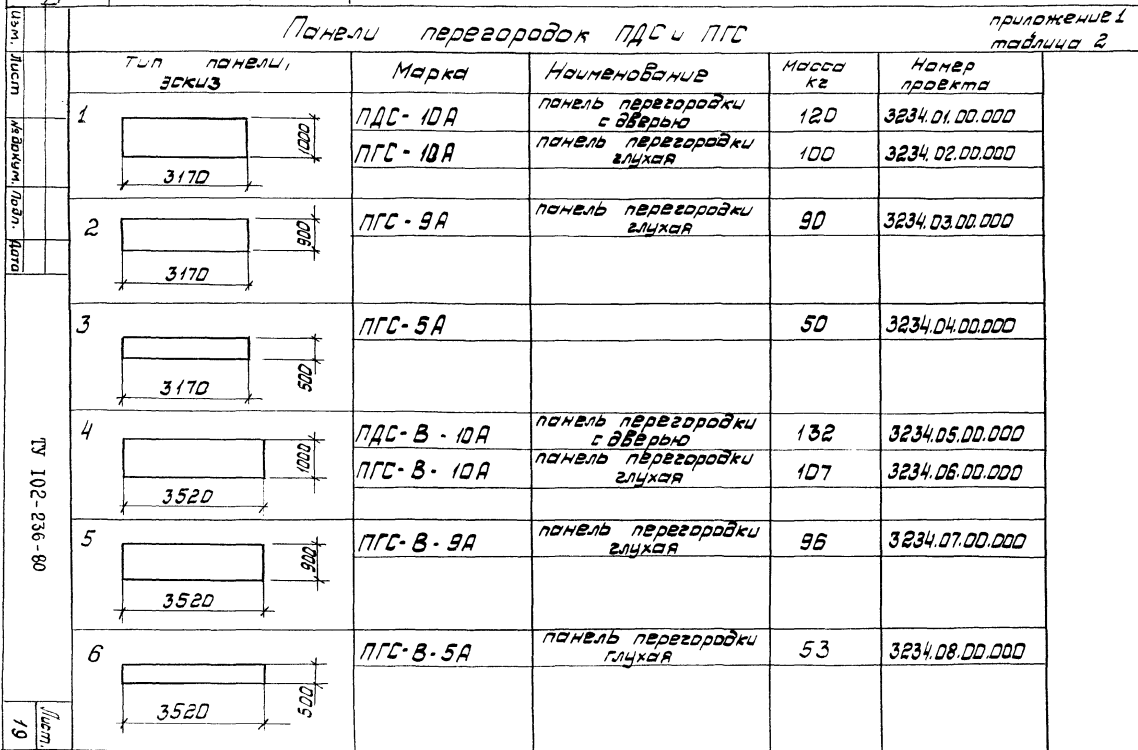 Панели перегородок ПДС и ПГС
приложение 1
таблица 2
Тип панели,
эскиз
Марка
Наименование
Масса
кг
Номер
проекта
1
1000
3170
ПДС-10А
панель перегородки
с дверью
120
3234.01.00.000
ПГС-10А
панель перегородки
глухая
100
3234.02.00.000
2
900
3170
ПГС-9А
панель перегородки
глухая
90
3234.03.00.000
3
500
3170
ПГС-5А
50
3234.04.00.000
4
1000
3520
ПДС-В-10А
панель перегородки
с дверью
132
3234.05.00.000
ПГС-В-10А
панель перегородки
глухая
107
3234.06.00.000
5
900
3520
ПГС-В-9А
панель перегородки
глухая
96
3234.07.00.000
6
500
3520
ПГС-В-5А
панель перегородки
глухая
53
3234.08.00.000
Изм. Лист № докум. Подп. Дата
ТУ 102-236-80
Лист.
19